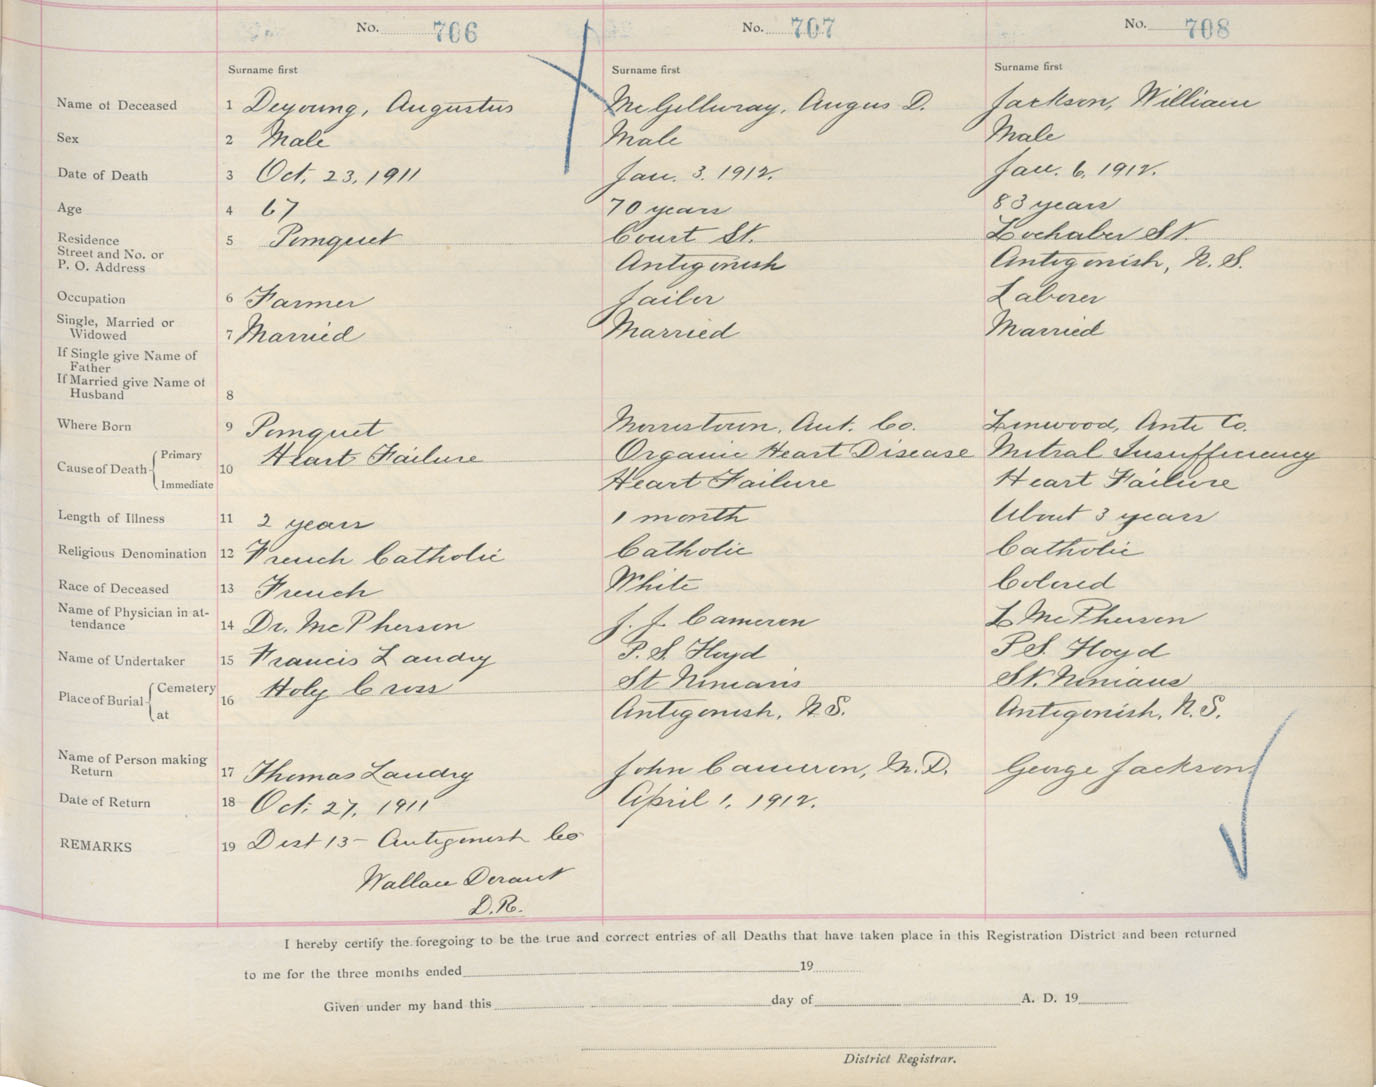 No. 706 No. 707 No. 708
Surname first Surname first Surname first
Name of Deceased 1 Deyoung, Augustus McGillivray, Angus D. Jackson, William
Sex 2 Male Male Male
Date of Death 3 Oct. 23, 1911 Jan. 3. 1912. Jan. 6. 1912.
Age 4 67 70 years 83 years
Residence
Street and No. or
P. O. Address
5 Pomquet Court St. Lochaber St.
Antigonish Antigonish, N.S.
Occupation 6 Farmer Jailor Laborer
Single, Married or
Widowed 7 Married Married Married
If Single give Name of
Father
If Married give Name of
Husband 8
Where Born 9 Pomquet Morristown, Ant. Co. Linwood, Anti Co.
Cause of Death Primary 10 Heart Failure Organic Heart Disease Mitral Insufficiency
Immediate Heart Failure Heart Failure
Length of Illness 11 2 years 1 month About 3 years
Religious Denomination 12 French Catholic Catholic Catholic
Race of Deceased 13 French White Colored
Name of Physician in at-
tendance 14 Dr. McPherson J. J. Cameron McPherson
Name of Undertaker 15 Francis Landry P. S. Floyd P S. Floyd
Place of Burial Cemetery 16 Holy Cross St Ninians St. Ninians
at Antigonish, N.S. Antigonish, N.S.
Name of Person making
Return 17 Thomas Landry John Cameron, M.D. George Jackson
Date of Return 18 Oct. 27, 1911 April 1, 1912.
REMARKS 19 Dist 13 - Antigonish Co
Wallace
D.R.
I hereby certify the foregoing to be the true and correct entries of all Deaths that have taken place in this Registration District and been returned
to me for the three months ended 19
Given under my hand this day of A. D. 19
District Registrar.